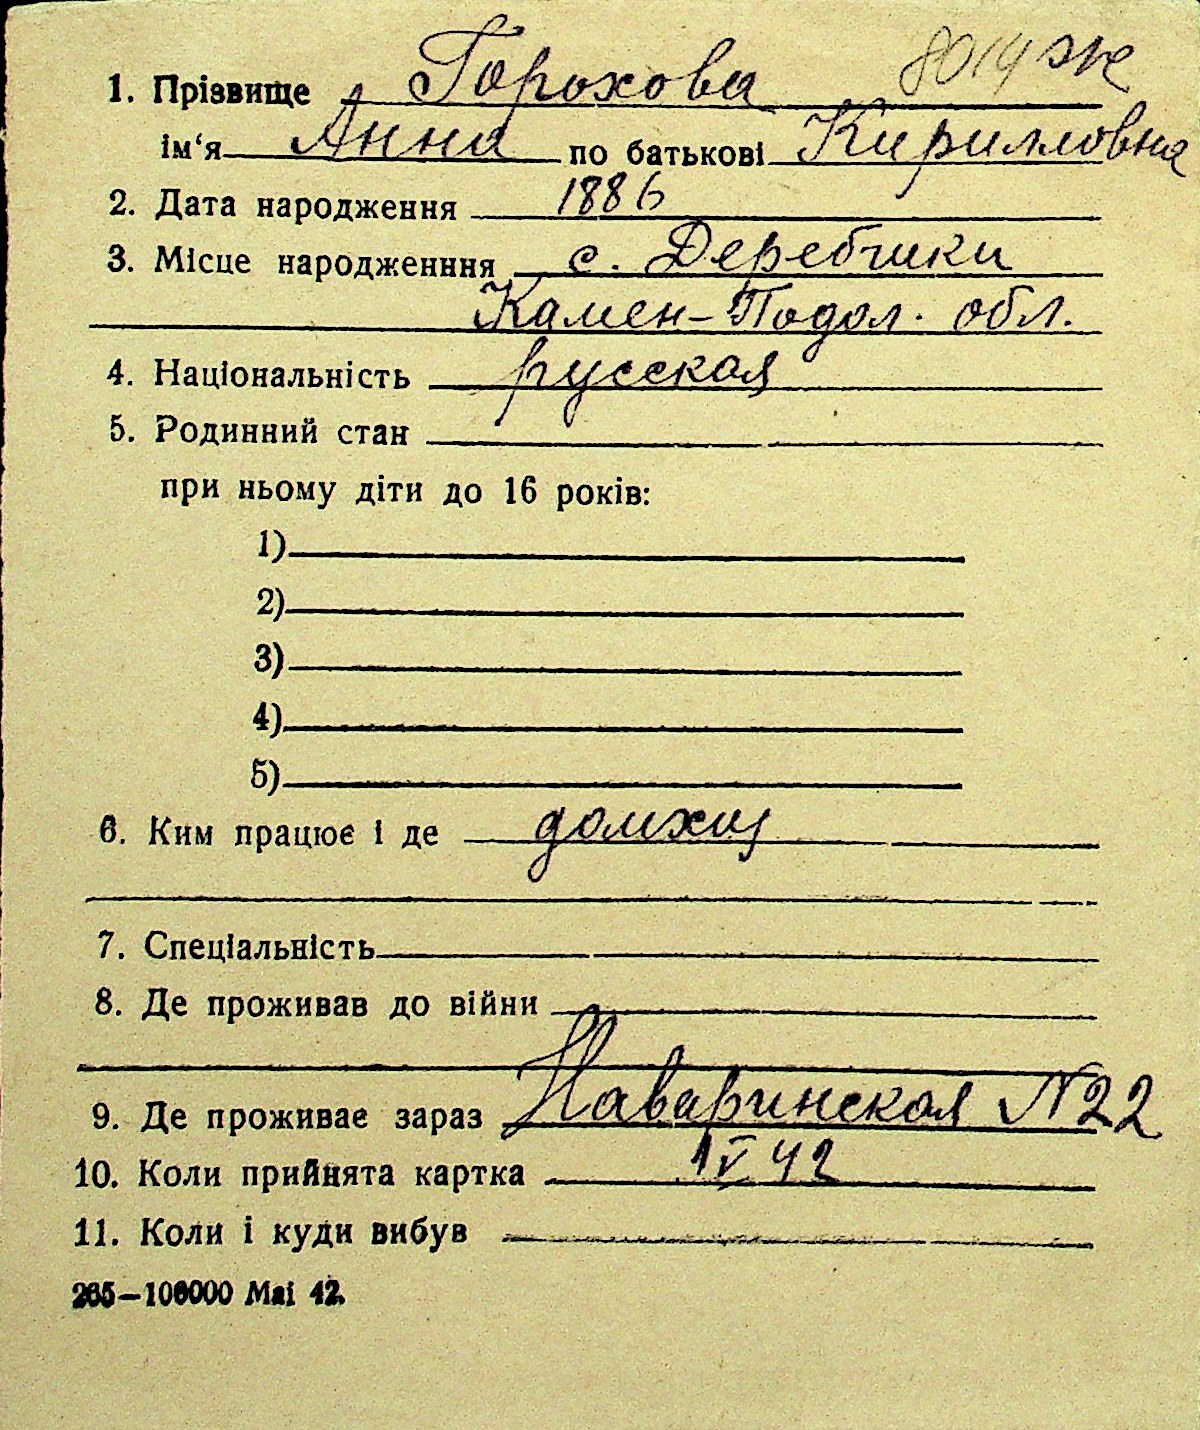 8014 эж
1. Прізвище Горохова
ім‘я Анна по батькові Кирилловна
2. Дата народження 1886
3. Місце народженння с. Деребчики
Камен-Подол. обл.
4. Національність русская
5. Родинний стан
при ньому діти до 16 років:
1)
2)
3)
4)
5)
6. Ким працює і де домхоз
7. Спеціальність
8. Де проживав до війни
9. Де проживає зараз Наваринская N22
10. Коли прийнята картка 1 V 42
11. Коли і куди вибув
265—106000 Маі 42.